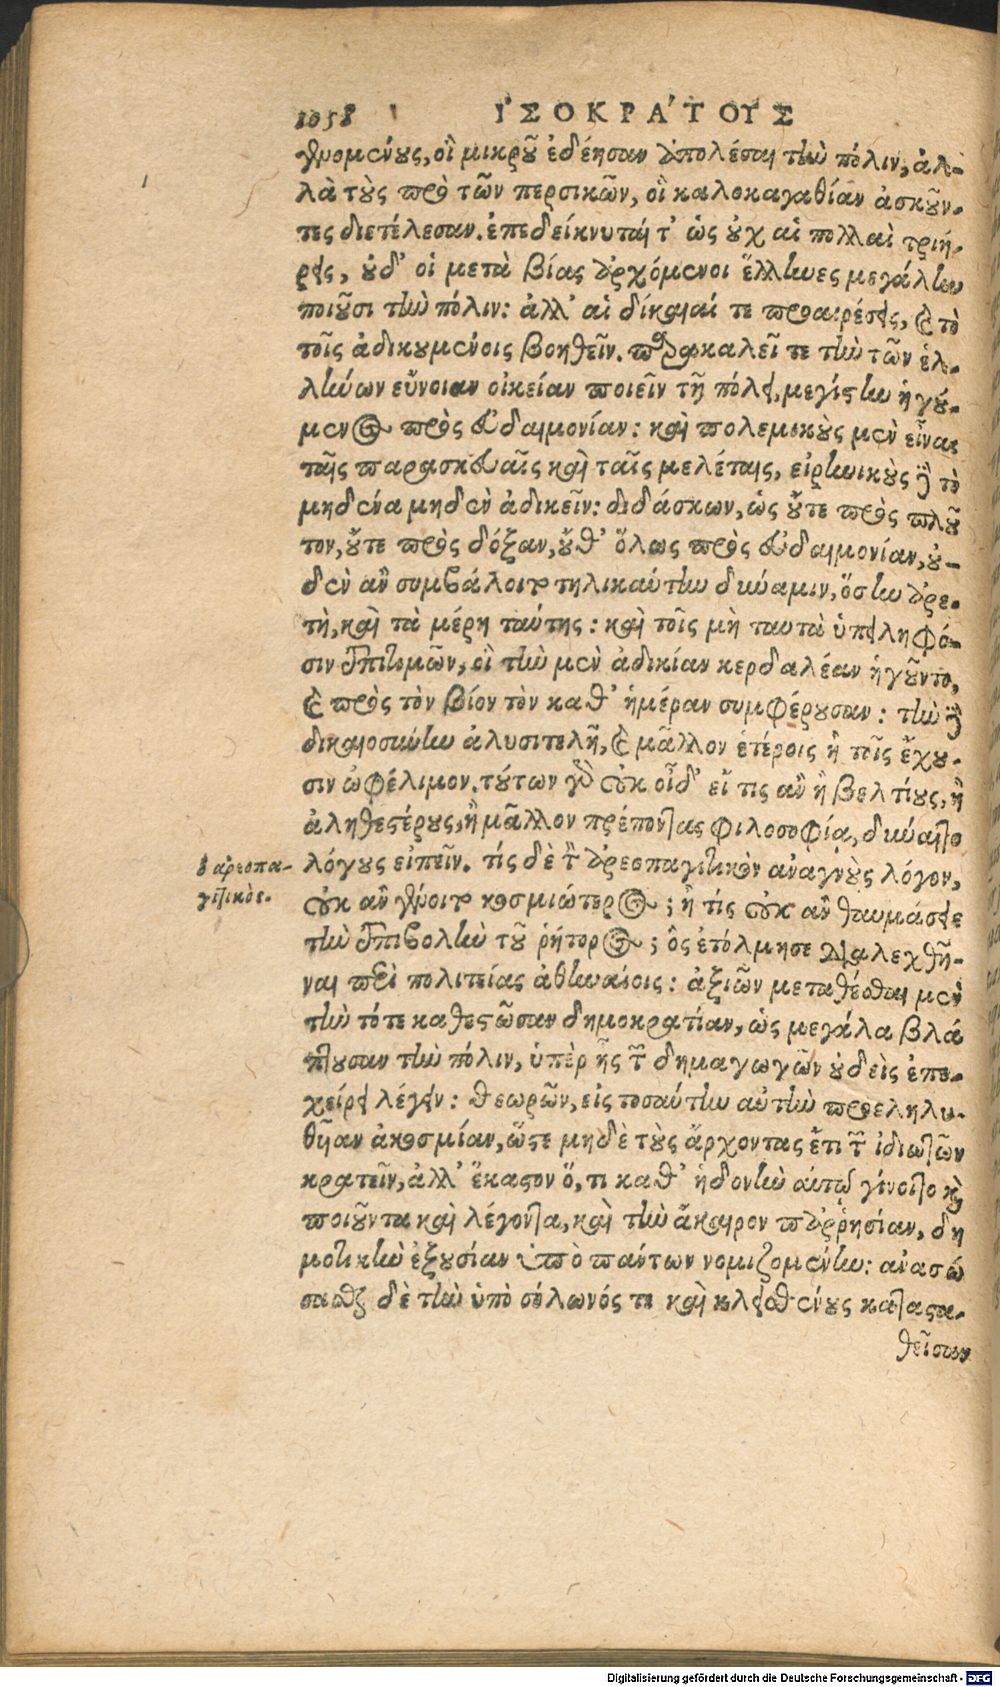 1058 ἸΣΟΚΡΆΤΟΥΣ
γενομένους, οἳ μικροῦ ἐδέησαν ἀπολέσαι τὴν πόλιν, ἀλ-
λὰ τοὺς πρὸ τῶν περσικῶν, οἳ καλοκαγαθίαν ἀσκοῦν-
τες διετέλεσαν. ἐπεδείκνυταί τ' ὡς οὐχ αἱ πολλαὶ τριή-
ρεις, οὐδ' οἱ μετὰ βίας ἀρχόμενοι ἕλληνες μεγάλην
ποιοῦσι τὴν πόλιν: ἀλλ' αἱ δίκαιαί τε προαιρέσεις, καὶ τὸ
τοῖς ἀδικουμένοις βοηθεῖν. παρακαλεῖ τε τὴν τῶν ἑλ-
λήνων εὔνοιαν οἰκείαν ποιεῖν τῇ πόλει, μεγίστην ἡγού-
μενος πρὸς εὐδαιμονίαν: καὶ πολεμικοὺς μὲν εἶναι
ταῖς παρασκευαῖς καὶ ταῖς μελέταις, εἰρηνικοὺς δὲ τὸ
μηδένα μηδὲν ἀδικεῖν: διδάσκων, ὡς οὔτε πρὸς πλοῦ
τον, οὔτε πρὸς δόξαν, οὔθ' ὅλως πρὸς εὐδαιμονίαν, οὐ-
δὲν ἂν συμβάλοιτο τηλικαύτην δύναμιν, ὅσην ἀρε-
τὴ, καὶ τὰ μέρη ταύτης: καὶ τοῖς μὴ ταυτὰ ὑπειληφό-
σιν ἐπιτιμῶν, οἳ τὴν μὲν ἀδικίαν κερδαλέαν ἡγοῦντο,
καὶ πρὸς τὸν βίον τὸν καθ' ἡμέραν συμφέρουσαν: τὴν δὲ
δικαιοσύνην ἀλυσιτελῆ, καὶ μᾶλλον ἑτέροις ἢ τοῖς ἔχου-
σιν ὠφέλιμον. τούτων γὰρ οὐκ οἶδ' εἴ τις ἂν ἢ βελτίους, ἢ
ἀληθεστέρους, ἢ μᾶλλον πρέποντας φιλοσοφίᾳ, δύναιτο
ὁ ἀρεοπα-
γιτικός.
λόγους εἰπεῖν. τίς δὲ τὸν ἀρεοπαγιτικὸν ἀναγνοὺς λόγον,
οὐκ ἂν γένοιτο κοσμιώτερος; ἢ τίς οὐκ ἂν θαυμάσειε
τὴν ἐπιβολὴν τοῦ ῥήτορος; ὃς ἐτόλμησε διαλεχθῆ-
ναι περὶ πολιτείας ἀθηναίοις: ἀξιῶν μεταθέσθαι μὲν
τὴν τότε καθεστῶσαν δημοκρατίαν, ὡς μεγάλα βλά
πτουσαν τὴν πόλιν, ὑπὲρ ἧς τῶν δημαγωγῶν οὐδεὶς ἐπε-
χείρει λέγειν: θεωρῶν, εἰς τοσαύτην αὐτὴν προεληλυ-
θῆαν ἀκοσμίαν, ὥστε μηδὲ τοὺς ἄρχοντας ἔτι τῶν ἰδιωτῶν
κρατεῖν, ἀλλ' ἕκαστον ὅ, τι καθ' ἡδονὴν αὑτῷ γίνοιτο καὶ
ποιοῦντα καὶ λέγοντα, καὶ τὴν ἄκαιρον παρρησίαν, δη
μοτικὴν ἐξουσίαν ὑπὸ πάντων νομιζομένην: ἀνασώ
σασθαι δὲ τὴν ὑπὸ σόλωνός τε καὶ κλεισθένους κατασα-
θεῖσαν
Digitalisierung gefördert durch die Deutsche Forschungsgemeinschaft - DFG